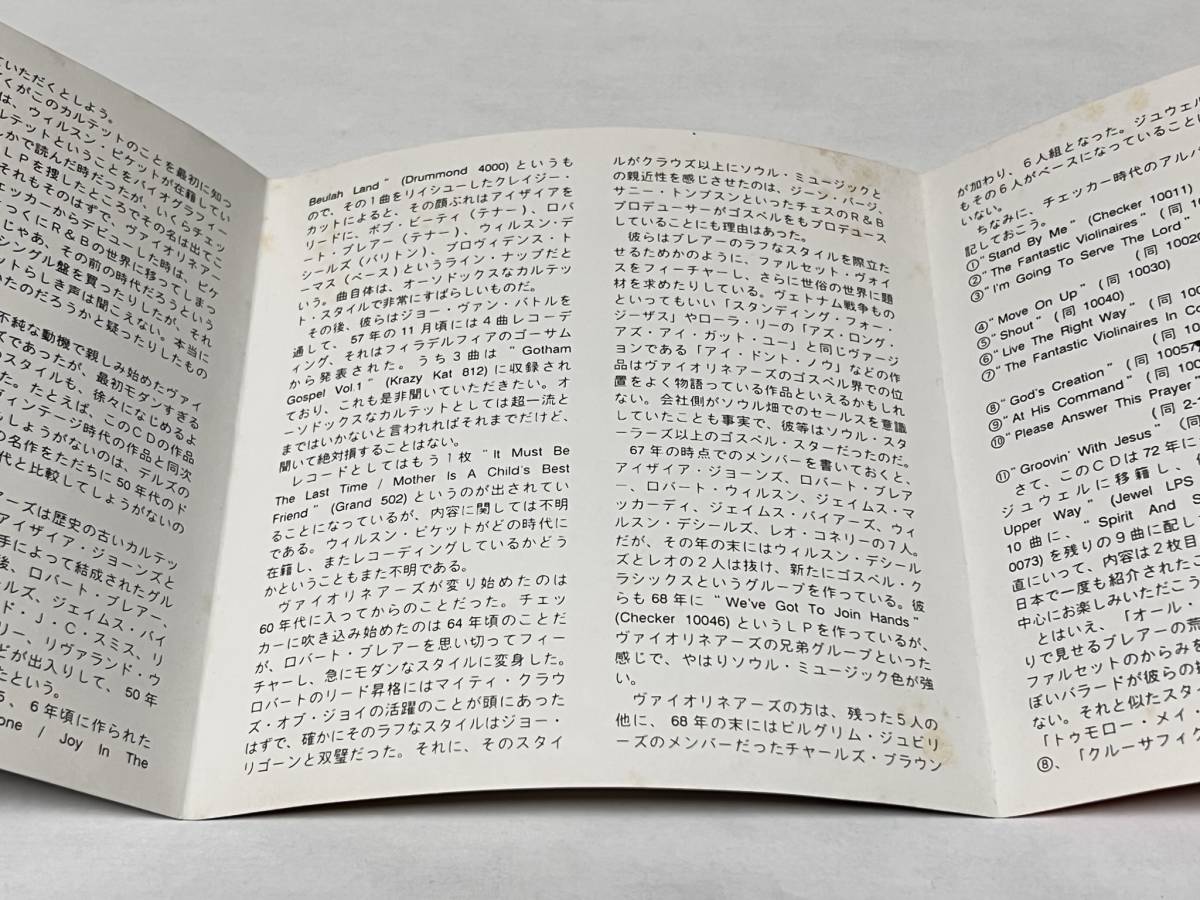 ていただくとしよう。
くがこのカルテットのことを最初に知っ
は、ウィルスン・ピケットが在籍してい
ルテットということをバイオグラフィー
かで読んだ時だったが、いくらチェッ
LPを捜したところでその名は出てこ
それもそのはずで、ヴァイオリネアー
ェッカーからデビューした時は、ピケ
とっくにR&Bの世界に移ってしまっ
じゃあ、その前の時代だろうという
シングル盤を買ったりしたが、それ
ットらしき声は聞こえない。本当に
いたのだろうかと疑ったりしたもの
不純な動機で親しみ始めたヴァイ
ズであったが、最初モダンすぎる
のスタイルも、徐々になじめるよ
た。たとえば、このCDの作品
ヴィンテージ時代の作品と同次
しょうがないのは、デルズの
の名作をただちに50年代のド
代と比較してしょうがないの
アーズは歴史の古いカルテッ
アイザイア・ジョーンズと
手によって結成されたグル
後、ロバート・ブレアー、
ールズ、ジェイムス・バイ
ド・J・C・スミス、リ
リー、リヴァランド・ウ
どが出入りして、50年
たという。
5、6年頃に作られた
one / Joy In The
Beulah Land" (Drummond 4000) というも
ので、その1曲をリイシューしたクレイジー・
カットによると、その顔ぶれはアイザイアを
リードに、ボブ・ビーティ(テナー)、ロバ
ート・ブレアー(テナー)、ウィルスン・デ
シールズ(バリトン)、プロヴィデンス・ト
ーマス(ベース)というライン・ナップだと
いう。曲自体は、オーソドックスなカルテッ
ト・スタイルで非常にすばらしいものだ。
その後、彼らはジョー・ヴァン・バトルを
通して、57年の11月頃には4曲レコーデ
ィング、それはフィラデルフィアのゴーサム
から発表された。うち3曲は "Gotham
Gospel Vol.1" (Krazy Kat 812) に収録され
ており、これも是非聞いていただきたい。オ
ーソドックスなカルテットとしては超一流と
まではいかないと言われればそれまでだけど、
聞いて絶対損することはない。
レコードとしてはもう1枚 "It Must Be
The Last Time / Mother Is A Child's Best
Friend" (Grand 502) というのが出されてい
ることになっているが、内容に関しては不明
である。ウィルスン・ピケットがどの時代に
在籍し、またレコーディングしているかどう
かということもまた不明である。
ヴァイオリネアーズが変り始めたのは
60年代に入ってからのことだった。チェッ
カーに吹き込み始めたのは64年頃のことだ
が、ロバート・ブレアーを思い切ってフィー
チャーし、急にモダンなスタイルに変身した。
ロバートのリード昇格にはマイティ・クラウ
ズ・オブ・ジョイの活躍のことが頭にあった
はずで、確かにそのラフなスタイルはジョー・
リゴーンと双璧だった。それに、そのスタイ
ルがクラウズ以上にソウル・ミュージックと
の親近性を感じさせたのは、ジーン・バージ、
サニー・トンプスンといったチェスのR&B
プロデューサーがゴスペルをもプロデュース
していることにも理由はあった。
彼らはブレアーのラフなスタイルを際立た
せるためかのように、ファルセット・ヴォイ
スをフィーチャーし、さらに世俗の世界に題
材を求めたりしている。ヴェトナム戦争もの
といってもいい「スタンディング・フォー・
ジーザス」やローラ・リーの「アズ・ロング・
アズ・アイ・ガット・ユー」と同じヴァージ
ョンである「アイ・ドント・ノウ」などの作
品はヴァイオリネアーズのゴスペル界での位
置をよく物語っている作品といえるかもしれ
ない。会社側がソウル畑でのセールスを意識
していたことも事実で、彼等はソウル・スタ
ーラーズ以上のゴスペル・スターだったのだ。
67年の時点でのメンバーを書いておくと、
アイザイア・ジョーンズ、ロバート・ブレア
ー、ロバート・ウィルスン、ジェイムス・マ
ッカーディ、ジェイムス・バイアーズ、ウィ
ルスン・デシールズ、レオ・コネリーの7人。
だが、その年の末にはウィルスン・デシール
ズとレオの2人は抜け、新たにゴスペル・ク
ラシックスというグループを作っている。彼
らも68年に "We've Got To Join Hands"
(Checker 10046) というLPを作っているが、
ヴァイオリネアーズの兄弟グループといった
感じで、やはりソウル・ミュージック色が強
い。
ヴァイオリネアーズの方は、残った5人の
他に、68年の末にはピルグリム・ジュビリ
ーズのメンバーだったチャールズ・ブラウン
が加わり、6人組となった。ジュウェル
もその6人がベースになっていることに
いない。
ちなみに、チェッカー時代のアルバ
記しておこう。
①"Stand By Me" (Checker 10011)
②"The Fantastic Violinaires" (同 10
③"I'm Going To Serve The Lord"
(同 10020
④"Move On Up" (同 10030)
⑤"Shout" (同 10040)
⑥"Live The Right Way" (同 100
⑦"The Fantastic Violinaires In Co
⑧"God's Creation" (同 10057
⑨"At His Command" (同 100
⑩"Please Answer This Prayer"
(同 2-1
⑪"Groovin' With Jesus" (同
さて、このCDは72年に
ジュウェルに移籍し、
Upper Way" (Jewel LPS
10曲に、"Spirit And S
0073) を残りの9曲に配し
直にいって、内容は2枚目
日本で一度も紹介されたこ
中心にお楽しみいただこう
とはいえ、「オール・
りで見せるブレアーの荒
ファルセットのからみを
ぽいバラードが彼らの
ない。それと似たスタイ
「トゥモロー・メイ・
⑧、「クルーサフィク